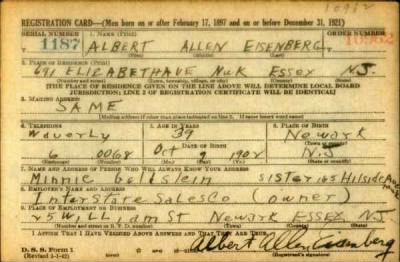 10962
REGISTRATION CARD—(Men born on or after February 17, 1897 and on or before December 31, 1921)
SERIAL NUMBER 1. NAME (Print) ORDER NUMBER
1187 ALBERT ALLEN EISENBERG 10962
(First) (Middle) (Last)
2. PLACE OF RESIDENCE (Print)
691 ELIZABETH AVE NWK ESSEX N.J.
(Number and street) (Town, township, village, or city) (County) (State)
[THE PLACE OF RESIDENCE GIVEN ON THE LINE ABOVE WILL DETERMINE LOCAL BOARD
JURISDICTION; LINE 2 OF REGISTRATION CERTIFICATE WILL BE IDENTICAL]
3. MAILING ADDRESS
SAME
[Mailing address if other than place indicated on line 2. If same insert word same]
4. TELEPHONE 5. AGE IN YEARS 6. PLACE OF BIRTH
Waverly 39 Newark
DATE OF BIRTH (Town or county)
6 0068 Oct 9 1902 N.J.
(Exchange) (Number) (Mo.) (Day) (Yr.) (State or country)
7. NAME AND ADDRESS OF PERSON WHO WILL ALWAYS KNOW YOUR ADDRESS
Minnie Goldstein SISTER 165 Hillside Ave
8. EMPLOYER'S NAME AND ADDRESS
Interstate Sales Co (owner)
9. PLACE OF EMPLOYMENT OR BUSINESS
25 William St Newark ESSEX N.J.
(Number and street or R. F. D. number) (Town) (County) (State)
I AFFIRM THAT I HAVE VERIFIED ABOVE ANSWERS AND THAT THEY ARE TRUE.
D. S. S. Form 1
Albert Allen Eisenberg